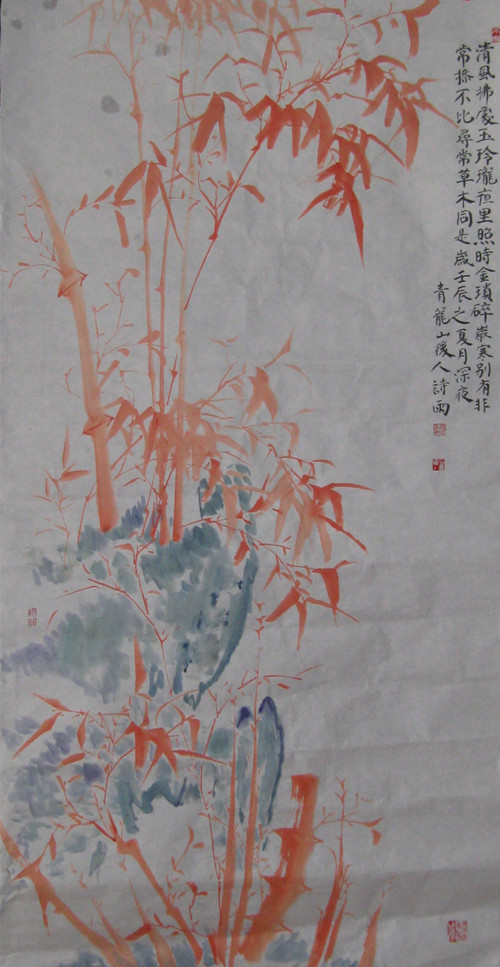 清風拂處玉玲瓏夜里照時金瑣碎歲寒別有非
常操不比尋常草木同是歲壬辰之夏月深夜
青龍山後人詩雨